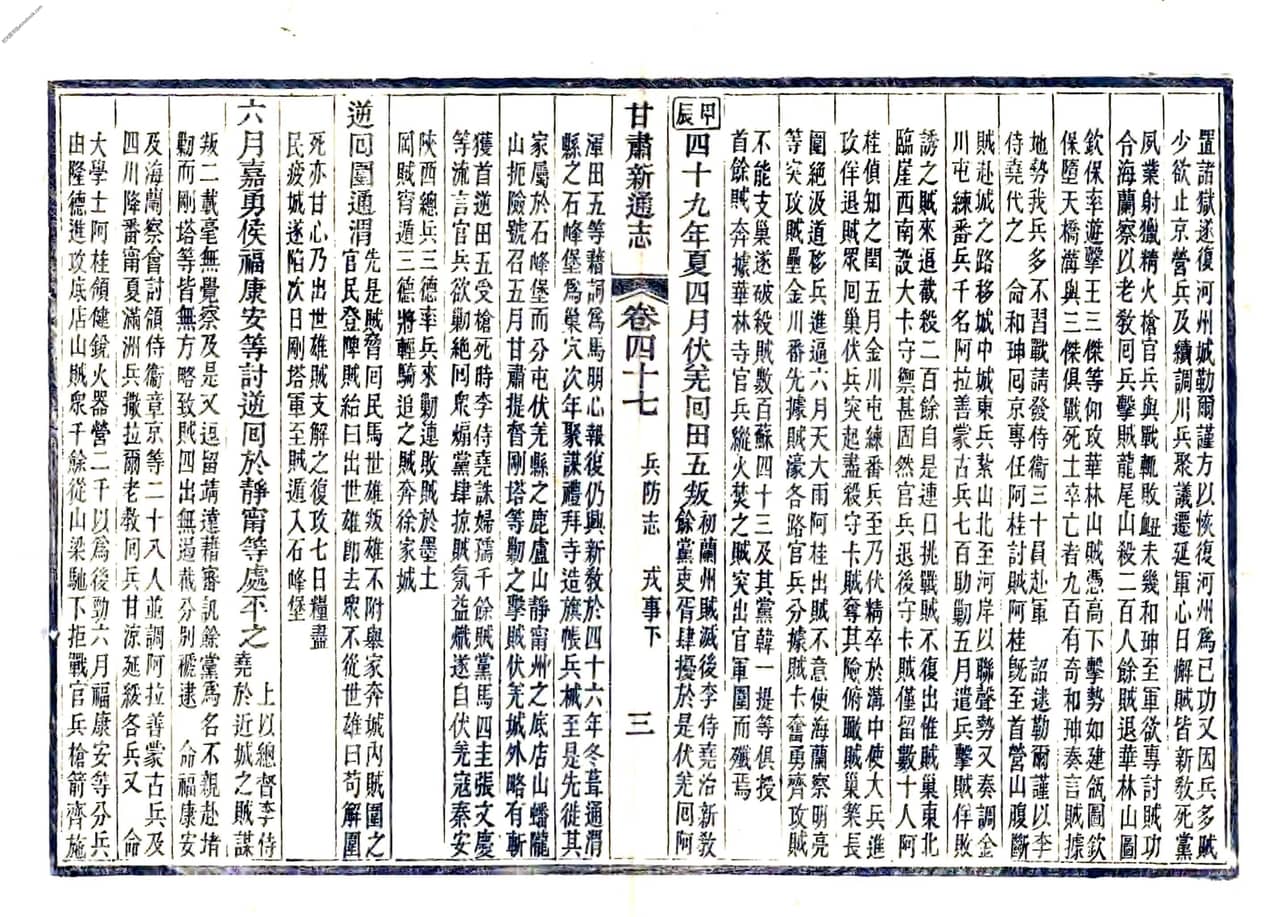 置諸獄遂復河州城勒爾謹方以恢復河州爲已功又因兵多賊
少欲止京營兵及續調川兵聚議遷延軍心日懈賊皆新教死黨
夙業射獵精火槍官兵與戰輒敗衄未幾和珅至軍欲專討賊功
令海蘭察以老教回兵擊賊龍尾山殺二百人餘賊退華林山圖
欽保率遊擊王三傑等仰攻華林山賊憑高下擊勢如建瓴圖欽
保墮天橋溝與三傑俱戰死士卒亡者九百有奇和珅奏言賊據
地勢我兵多不習戰請發侍衞三十員赴軍　詔逮勒爾謹以李
侍堯代之　命和珅回京專任阿桂討賊阿桂旣至首營山腹斷
賊赴城之路移城中城東兵紮山北至河岸以聯聲勢又奏調金
川屯練番兵千名阿拉善蒙古兵七百助勦五月遣兵擊賊佯敗
誘之賊來追截殺二百餘自是連口挑戰賊不復出惟賊巢東北
臨崖西南設大卡守禦甚固然官兵退後守卡賊僅留數十人阿
桂偵知之閏五月金川屯練番兵至乃伏精卒於溝中使大兵進
攻佯退賊眾回巢伏兵突起盡殺守卡賊奪其險俯瞰賊巢築長
圍絕汲道移兵進逼六月天大雨阿桂出賊不意使海蘭察明亮
等突攻賊壘金川番先據賊濠各路官兵分據賊卡奮勇齊攻賊
不能支巢遂破殺賊數百蘇四十三及其黨韓一提等俱授
首餘賊奔據華林寺官兵縱火焚之賊突出官軍圍而殲焉
甲辰四十九年夏四月伏羌回田五叛初蘭州賊滅後李侍堯治新教
餘黨吏胥肆擾於是伏羌回阿
甘肅新通志　卷四十七　兵防志　戎事下　三
渾田五等藉詞爲馬明心報復仍興新教於四十六年冬葺通渭
縣之石峰堡爲巢穴次年聚謀禮拜寺造旗帳兵械至是先徙其
家屬於石峰堡而分屯伏羌縣之鹿盧山靜甯州之底店山蟠龍
山扼險號召五月甘肅提督剛塔等勦之擊賊伏羌城外略有斬
獲首逆田五受槍死時李侍堯誅婦孺千餘賊黨馬四圭張文慶
等流言官兵欲勦絕回眾煽黨肆掠賊氛益熾遂自伏羌寇秦安
陝西總兵三德率兵來勦連敗賊於墨土
岡賊宵遁三德將輕騎追之賊奔徐家城
逆回圍通渭先是賊脅回民馬世雄叛雄不附舉家奔城內賊圍之
官民登陴賊紿曰出世雄卽去眾不從世雄曰苟解圍
死亦甘心乃出世雄賊支解之復攻七日糧盡
民疲城遂陷次日剛塔軍至賊遁入石峰堡
六月嘉勇侯福康安等討逆回於靜甯等處平之　上以總督李侍
堯於近城之賊謀
叛二載毫無覺察及是又逗留靖遠藉審訊餘黨爲名不親赴堵
勦而剛塔等皆無方略致賊四出無遏截分別褫逮　命福康安
及海蘭察會討領侍衞章京等二十八人並調阿拉善蒙古兵及
四川降番甯夏滿洲兵撒拉爾老教回兵甘涼延綏各兵又　命
大學士阿桂領健銳火器營二千以爲後勁六月福康安等分兵
由隆德進攻底店山賊眾千餘從山梁馳下拒戰官兵槍箭齊施